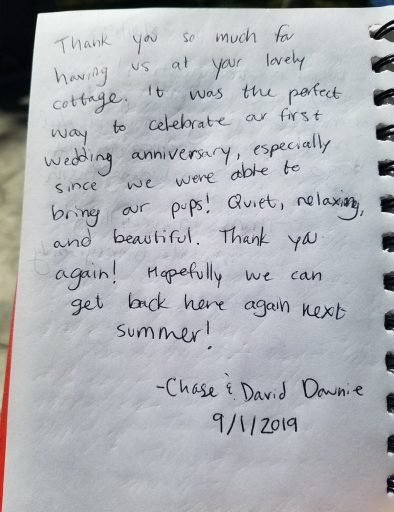 Thank you so much for
having us at your lovely
cottage. It was the perfect
way to celebrate our first
wedding anniversary, especially
since we were able to
bring our pups! Quiet, relaxing,
and beautiful. Thank you
again! Hopefully we can
get back here again next
summer!
-Chase & David Downie
9/1/2019